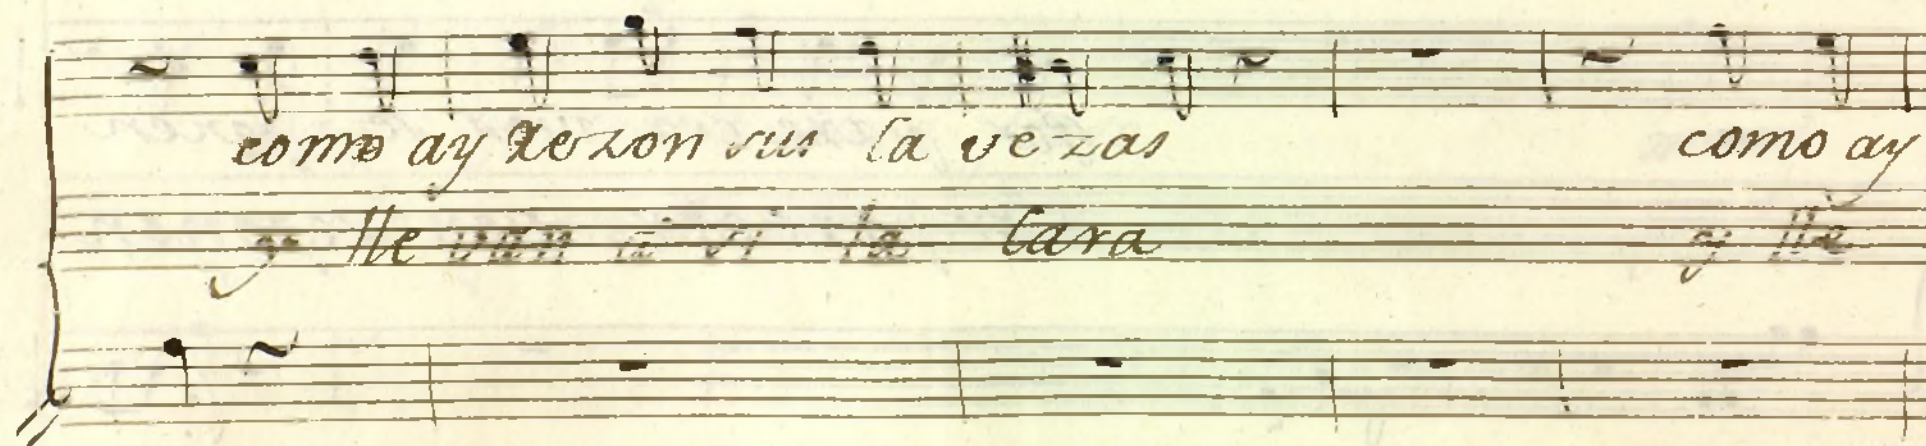 como ay Rezon sus la vezas como ay
y lle van a si la Cara y lle